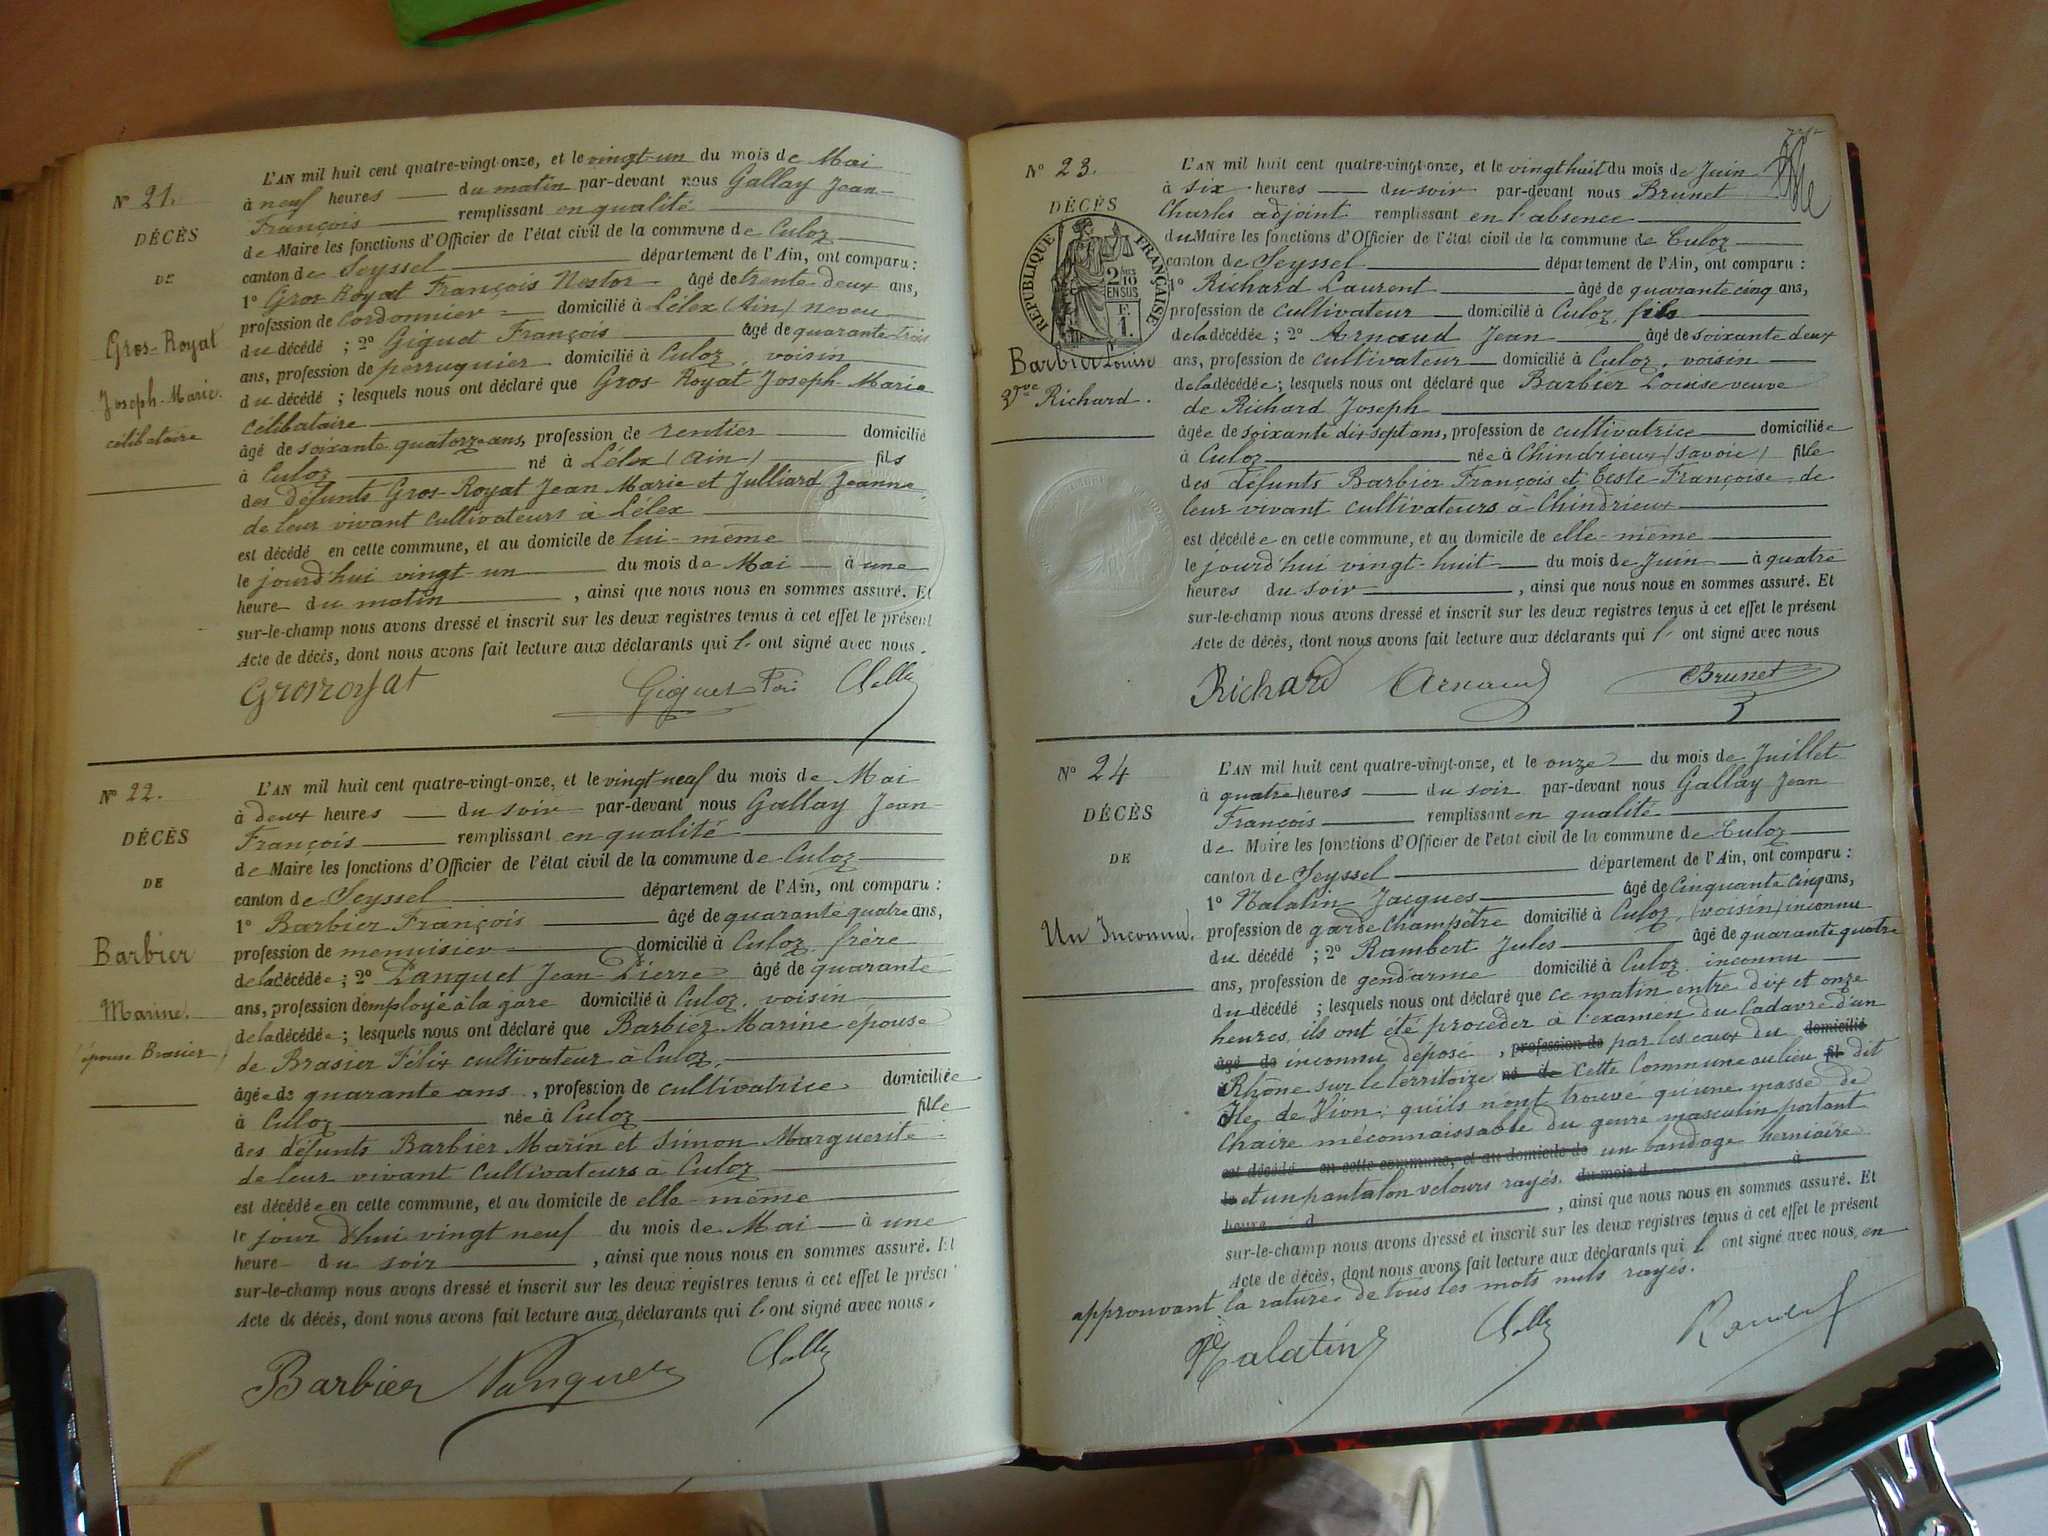 N° 21.
DÉCÈS
DE
Gros-Royat
Joseph-Marie.
célibataire
L'AN mil huit cent quatre-vingt-onze, et le vingt-un du mois de Mai
à neuf heures du matin par-devant nous Gallay Jean-
François remplissant en qualité
de Maire les fonctions d'Officier de l'état civil de la commune de Culoz
canton de Seyssel département de l'Ain, ont comparu :
1° Gros Royat François Nestor âgé de trente deux ans,
profession de cordonnier domicilié à Lélex (Ain) neveu
du décédé ; 2° Giguet François âgé de quarante trois
ans, profession de perruquier domicilié à Culoz, voisin
du décédé ; lesquels nous ont déclaré que Gros Royat Joseph-Marie
célibataire
âgé de soixante quatorze ans, profession de rentier domicilié
à Culoz né à Lélex (Ain) fils
des défunts Gros-Royat Jean Marie et Julliard Jeanne
de leur vivant cultivateurs à Lélex
est décédé en cette commune, et au domicile de lui-même
le jourd'hui vingt-un du mois de Mai à une
heure du matin , ainsi que nous nous en sommes assuré. Et
sur-le-champ nous avons dressé et inscrit sur les deux registres tenus à cet effet le présent
Acte de décès, dont nous avons fait lecture aux déclarants qui l'ont signé avec nous.
Grosroyat Giguet
N° 22.
DÉCÈS
DE
Barbier
Marine.
épouse Brasier
L'AN mil huit cent quatre-vingt-onze, et le vingt-neuf du mois de Mai
à deux heures du soir par-devant nous Gallay Jean-
François remplissant en qualité
de Maire les fonctions d'Officier de l'état civil de la commune de Culoz
canton de Seyssel département de l'Ain, ont comparu :
1° Barbier François âgé de quarante quatre ans,
profession de menuisier domicilié à Culoz frère
de la décédée ; 2° Panquet Jean-Pierre âgé de quarante
ans, profession d'employé à la gare domicilié à Culoz, voisin
de la décédée ; lesquels nous ont déclaré que Barbier Marine épouse
de Brasier Félix cultivateur à Culoz,
âgée de quarante ans , profession de cultivatrice domiciliée
à Culoz née à Culoz fille
des défunts Barbier Marin et Simon Marguerite
de leur vivant Cultivateurs à Culoz
est décédée en cette commune, et au domicile de elle-même
le jour d'hui vingt neuf du mois de Mai à une
heure du soir , ainsi que nous nous en sommes assuré. Et
sur-le-champ nous avons dressé et inscrit sur les deux registres tenus à cet effet le présent
Acte de décès, dont nous avons fait lecture aux déclarants qui l'ont signé avec nous.
Barbier Panquet
N° 23.
DÉCÈS
RÉPUBLIQUE FRANÇAISE
2/10 EN SUS
F. 1.
Barbier Louise
Vve Richard.
L'AN mil huit cent quatre-vingt-onze, et le vingt huit du mois de Juin
à six heures du soir par-devant nous Brunet
Charles adjoint remplissant en l'absence
du Maire les fonctions d'Officier de l'état civil de la commune de Culoz
canton de Seyssel département de l'Ain, ont comparu :
1° Richard Laurent âgé de quarante cinq ans,
profession de cultivateur domicilié à Culoz, fils
de la décédée ; 2° Arnaud Jean âgé de soixante deux
ans, profession de cultivateur domicilié à Culoz, voisin
de la décédée ; lesquels nous ont déclaré que Barbier Louise veuve
de Richard Joseph
âgée de soixante dix sept ans, profession de cultivatrice domiciliée
à Culoz née à Chindrieux (Savoie) fille
des défunts Barbier François et Teste Françoise de
leur vivant cultivateurs à Chindrieux
est décédée en cette commune, et au domicile de elle-même
le jourd'hui vingt-huit du mois de Juin à quatre
heures du soir , ainsi que nous nous en sommes assuré. Et
sur-le-champ nous avons dressé et inscrit sur les deux registres tenus à cet effet le présent
Acte de décès, dont nous avons fait lecture aux déclarants qui l'ont signé avec nous
Richard Arnaud Brunet
N° 24
DÉCÈS
DE
Un Inconnu.
L'AN mil huit cent quatre-vingt-onze, et le onze du mois de Juillet
à quatre heures du soir par-devant nous Gallay Jean
François remplissant en qualité
de Maire les fonctions d'Officier de l'état civil de la commune de Culoz
canton de Seyssel département de l'Ain, ont comparu :
1° Malatin Jacques âgé de Cinquante cinq ans,
profession de garde Champêtre domicilié à Culoz, (voisin) inconnu
du décédé ; 2° Rambert Jules âgé de quarante quatre
ans, profession de gendarme domicilié à Culoz inconnu
du décédé ; lesquels nous ont déclaré que ce matin entre dix et onze
heures, ils ont été procéder à l'examen du Cadavre d'un
âgé de inconnu déposé , profession de par les eaux du domicilié
Rhône sur le territoire né de cette Commune au lieu fil dit
Ile de Vion ; qu'ils n'ont trouvé qu'une masse de
Chaire méconnaissable du genre masculin portant
est décédé en cette commune, et au domicile de un bandage herniaire
le et un pantalon velours rayés. du mois d à
heure d , ainsi que nous nous en sommes assuré. Et
sur-le-champ nous avons dressé et inscrit sur les deux registres tenus à cet effet le présent
Acte de décès, dont nous avons fait lecture aux déclarants qui l'ont signé avec nous, en
approuvant la rature de tous les mots nuls rayés.
Malatin